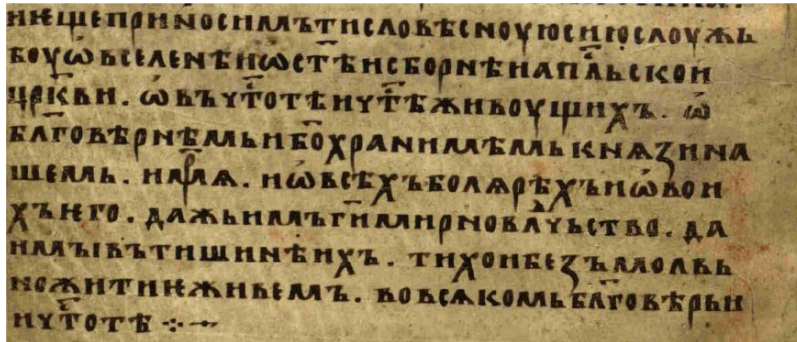 нѥщепринѡсимътисловѣсноуюсиюслоужь
боуѡвселенѣиѡст҃ѣисборнѣиапⷭ҇льскои
цр҃кви. ѡвъчⷭ҇тотѣичⷭ҇тѣживоущихъ. ѡ
бл҃говѣрнѣмьибг҃охранимѣмькнѧзина
шемь. имⷬ҇ѧ. иѡвсѣхъболѧрѣхъиѡвои
хъѥго. дажьимъгиⷭ҇мирноеⷭ҇вл҃чьство. да
имꙑвътишинѣихъ. тихоибезъмолвь
ножитиѥживемъ. вовсѧкомьбл҃говѣрьи
ичⷭ҇тотѣ ⁘ ~